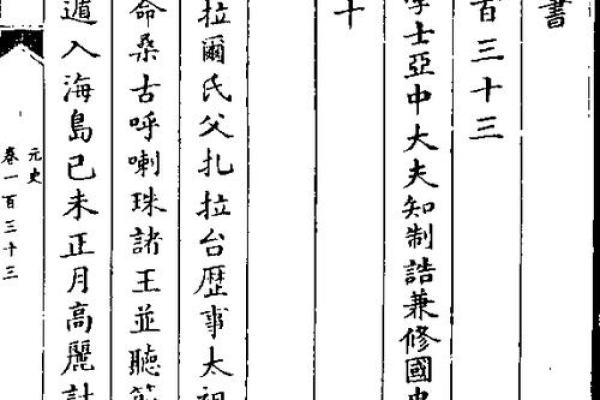 書
百三十三
學士亞中大夫知制誥兼修國史
十
拉爾氏父扎拉台歴事太祖
命桑古呼喇珠諸王並聽
遁入海島己未正月高麗計
元史
卷一百三十三